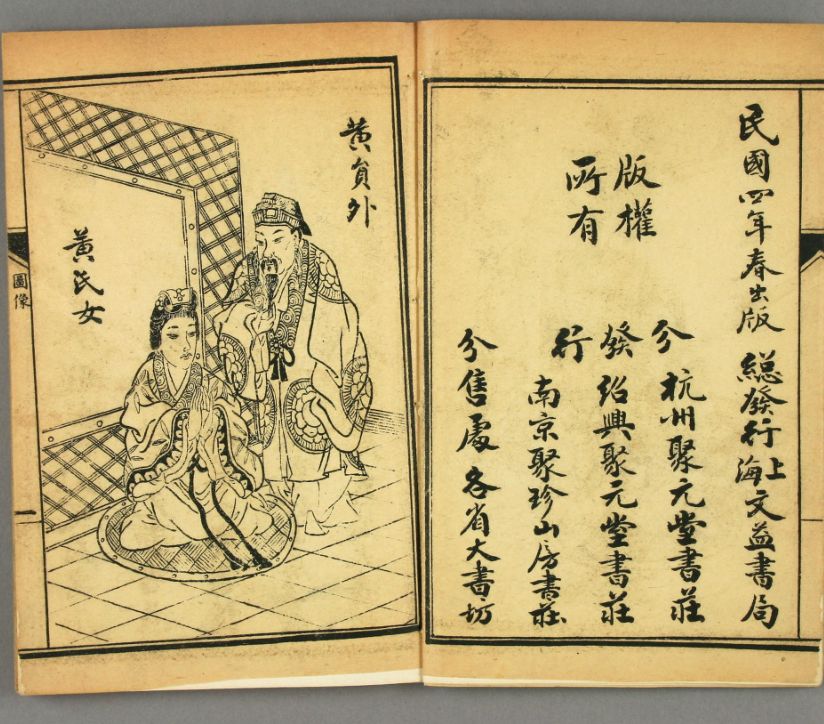 民國四年春出版 總發行上海文益書局
版權
所有
分發行
杭州聚元堂書莊
紹興聚元堂書莊
南京聚珍山房書莊
分售處各省大書坊
黃員外
黃氏女
圖像
一